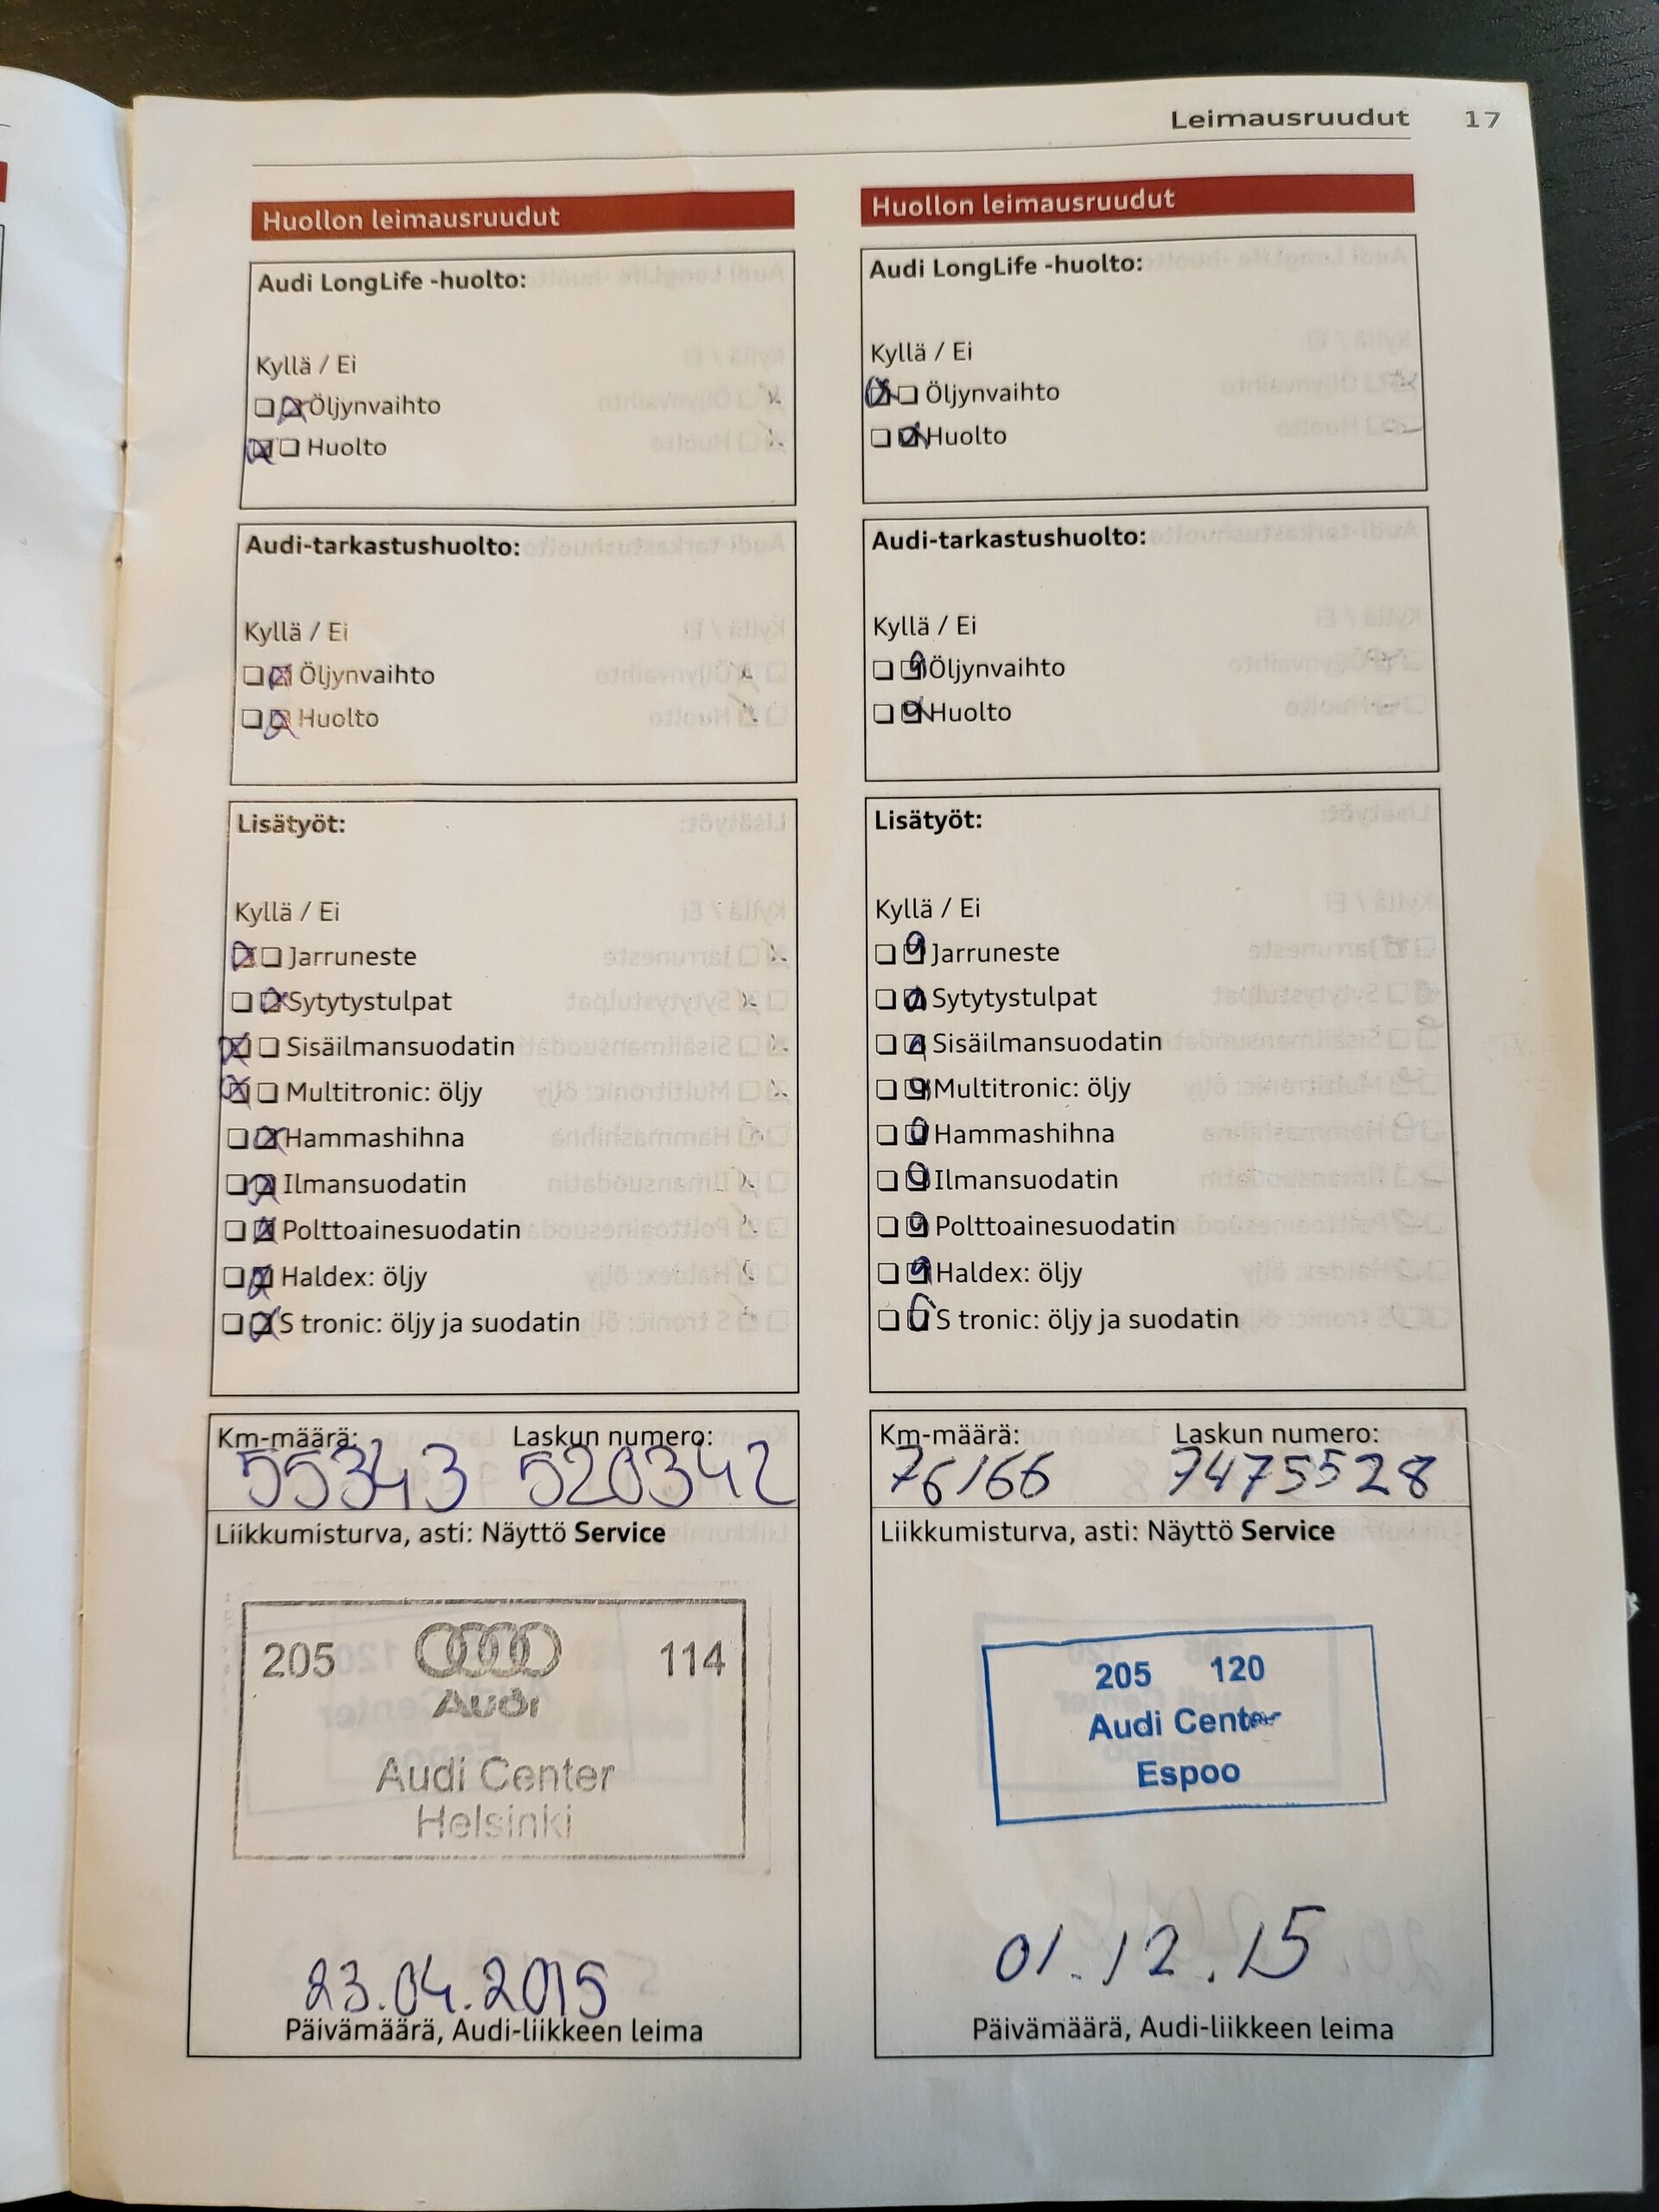 Leimausruudut 17
Huollon leimausruudut
Audi LongLife -huolto:
Kyllä / Ei
Öljynvaihto
Huolto
Audi-tarkastushuolto:
Kyllä / Ei
Öljynvaihto
Huolto
Lisätyöt:
Kyllä / Ei
Jarruneste
Sytytystulpat
Sisäilmansuodatin
Multitronic: öljy
Hammashihna
Ilmansuodatin
Polttoainesuodatin
Haldex: öljy
S tronic: öljy ja suodatin
Km-määrä: Laskun numero:
55343 520342
Liikkumisturva, asti: Näyttö Service
205 114
Audi
Audi Center
Helsinki
23.04.2015
Päivämäärä, Audi-liikkeen leima
Huollon leimausruudut
Audi LongLife -huolto:
Kyllä / Ei
Öljynvaihto
Huolto
Audi-tarkastushuolto:
Kyllä / Ei
Öljynvaihto
Huolto
Lisätyöt:
Kyllä / Ei
Jarruneste
Sytytystulpat
Sisäilmansuodatin
Multitronic: öljy
Hammashihna
Ilmansuodatin
Polttoainesuodatin
Haldex: öljy
S tronic: öljy ja suodatin
Km-määrä: Laskun numero:
76166 7475528
Liikkumisturva, asti: Näyttö Service
205 120
Audi Center
Espoo
01.12.15
Päivämäärä, Audi-liikkeen leima